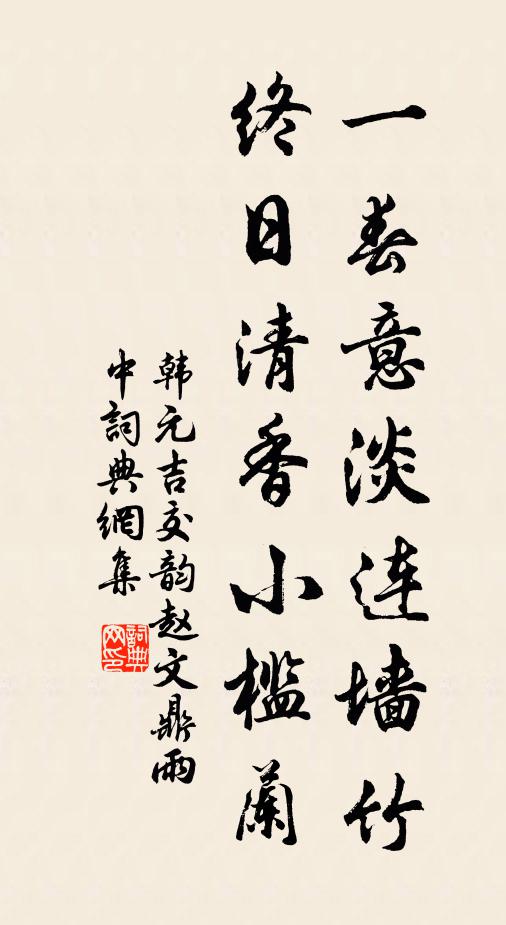 一春意淡连墙竹
终日清香小槛蘭
韩元吉交韵赵文鼎雨
中詞典網集
詞典网印